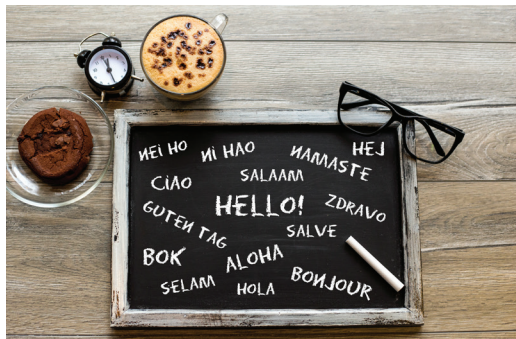 NEI HO
NI HAO
NAMASTE
HEJ
CIAO
SALAAM
HELLO!
ZDRAVO
GUTEN TAG
SALVE
BOK
ALOHA
SELAM
HOLA
BONJOUR